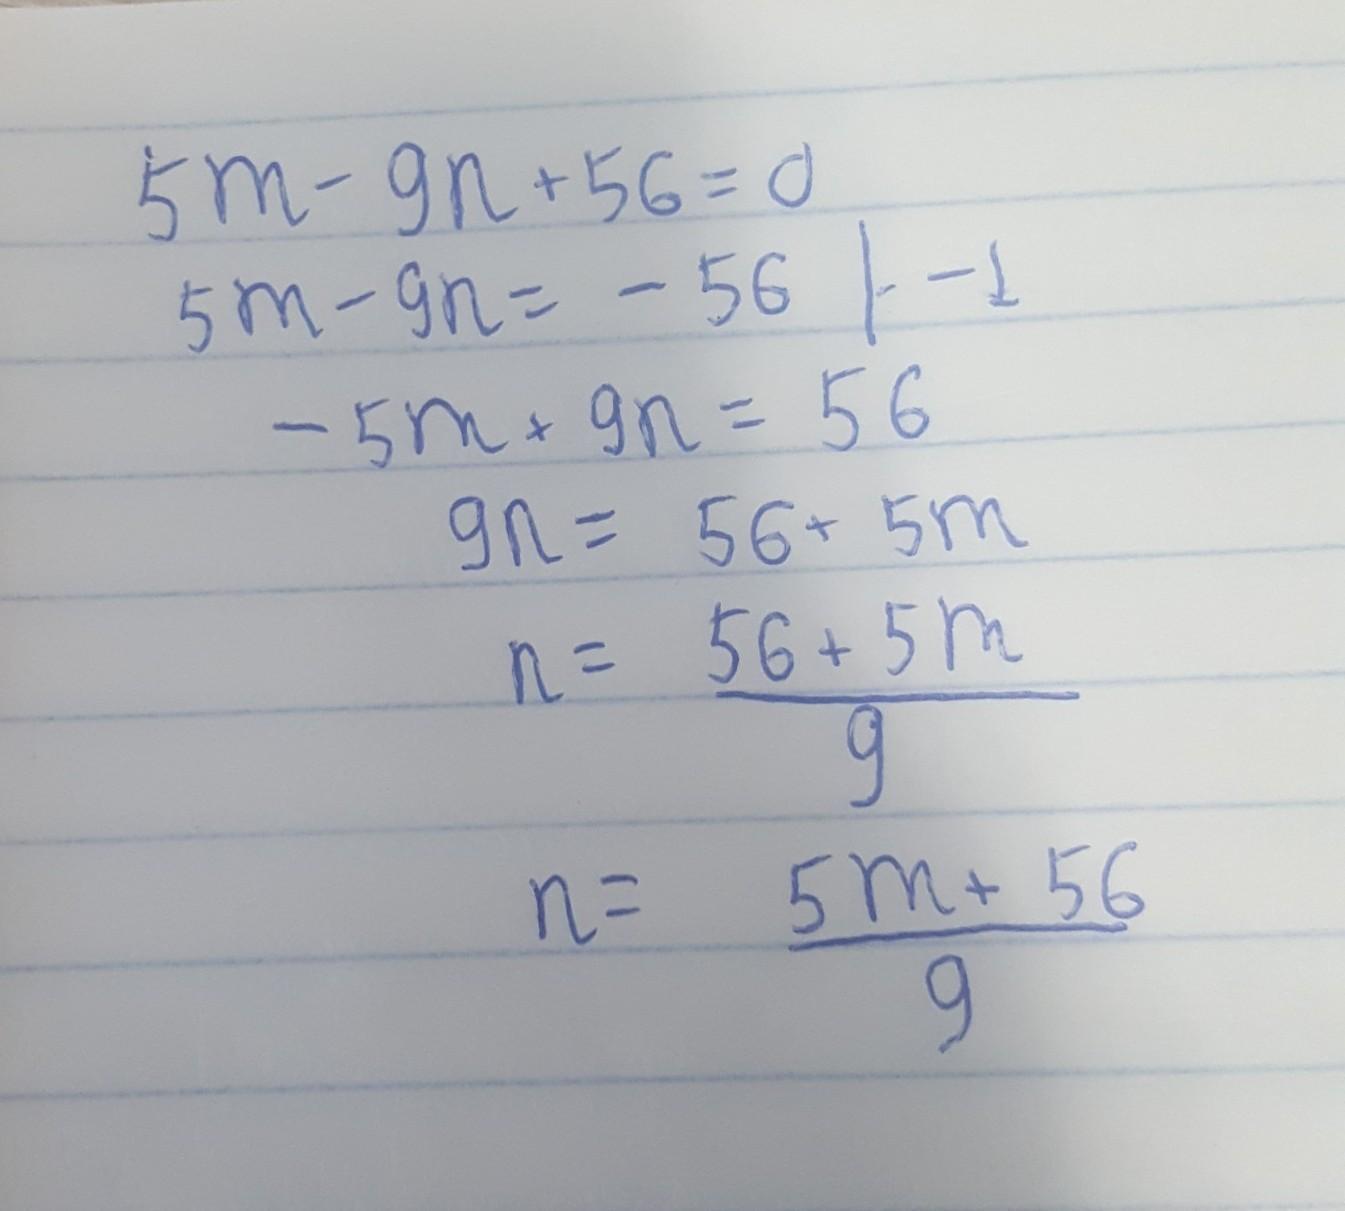 5m - 9n + 56 = 0
5m - 9n = - 56 | · - 1
- 5m + 9n = 56
9n = 56 + 5m
n = \frac{56 + 5m}{9}
n = \frac{5m + 56}{9}